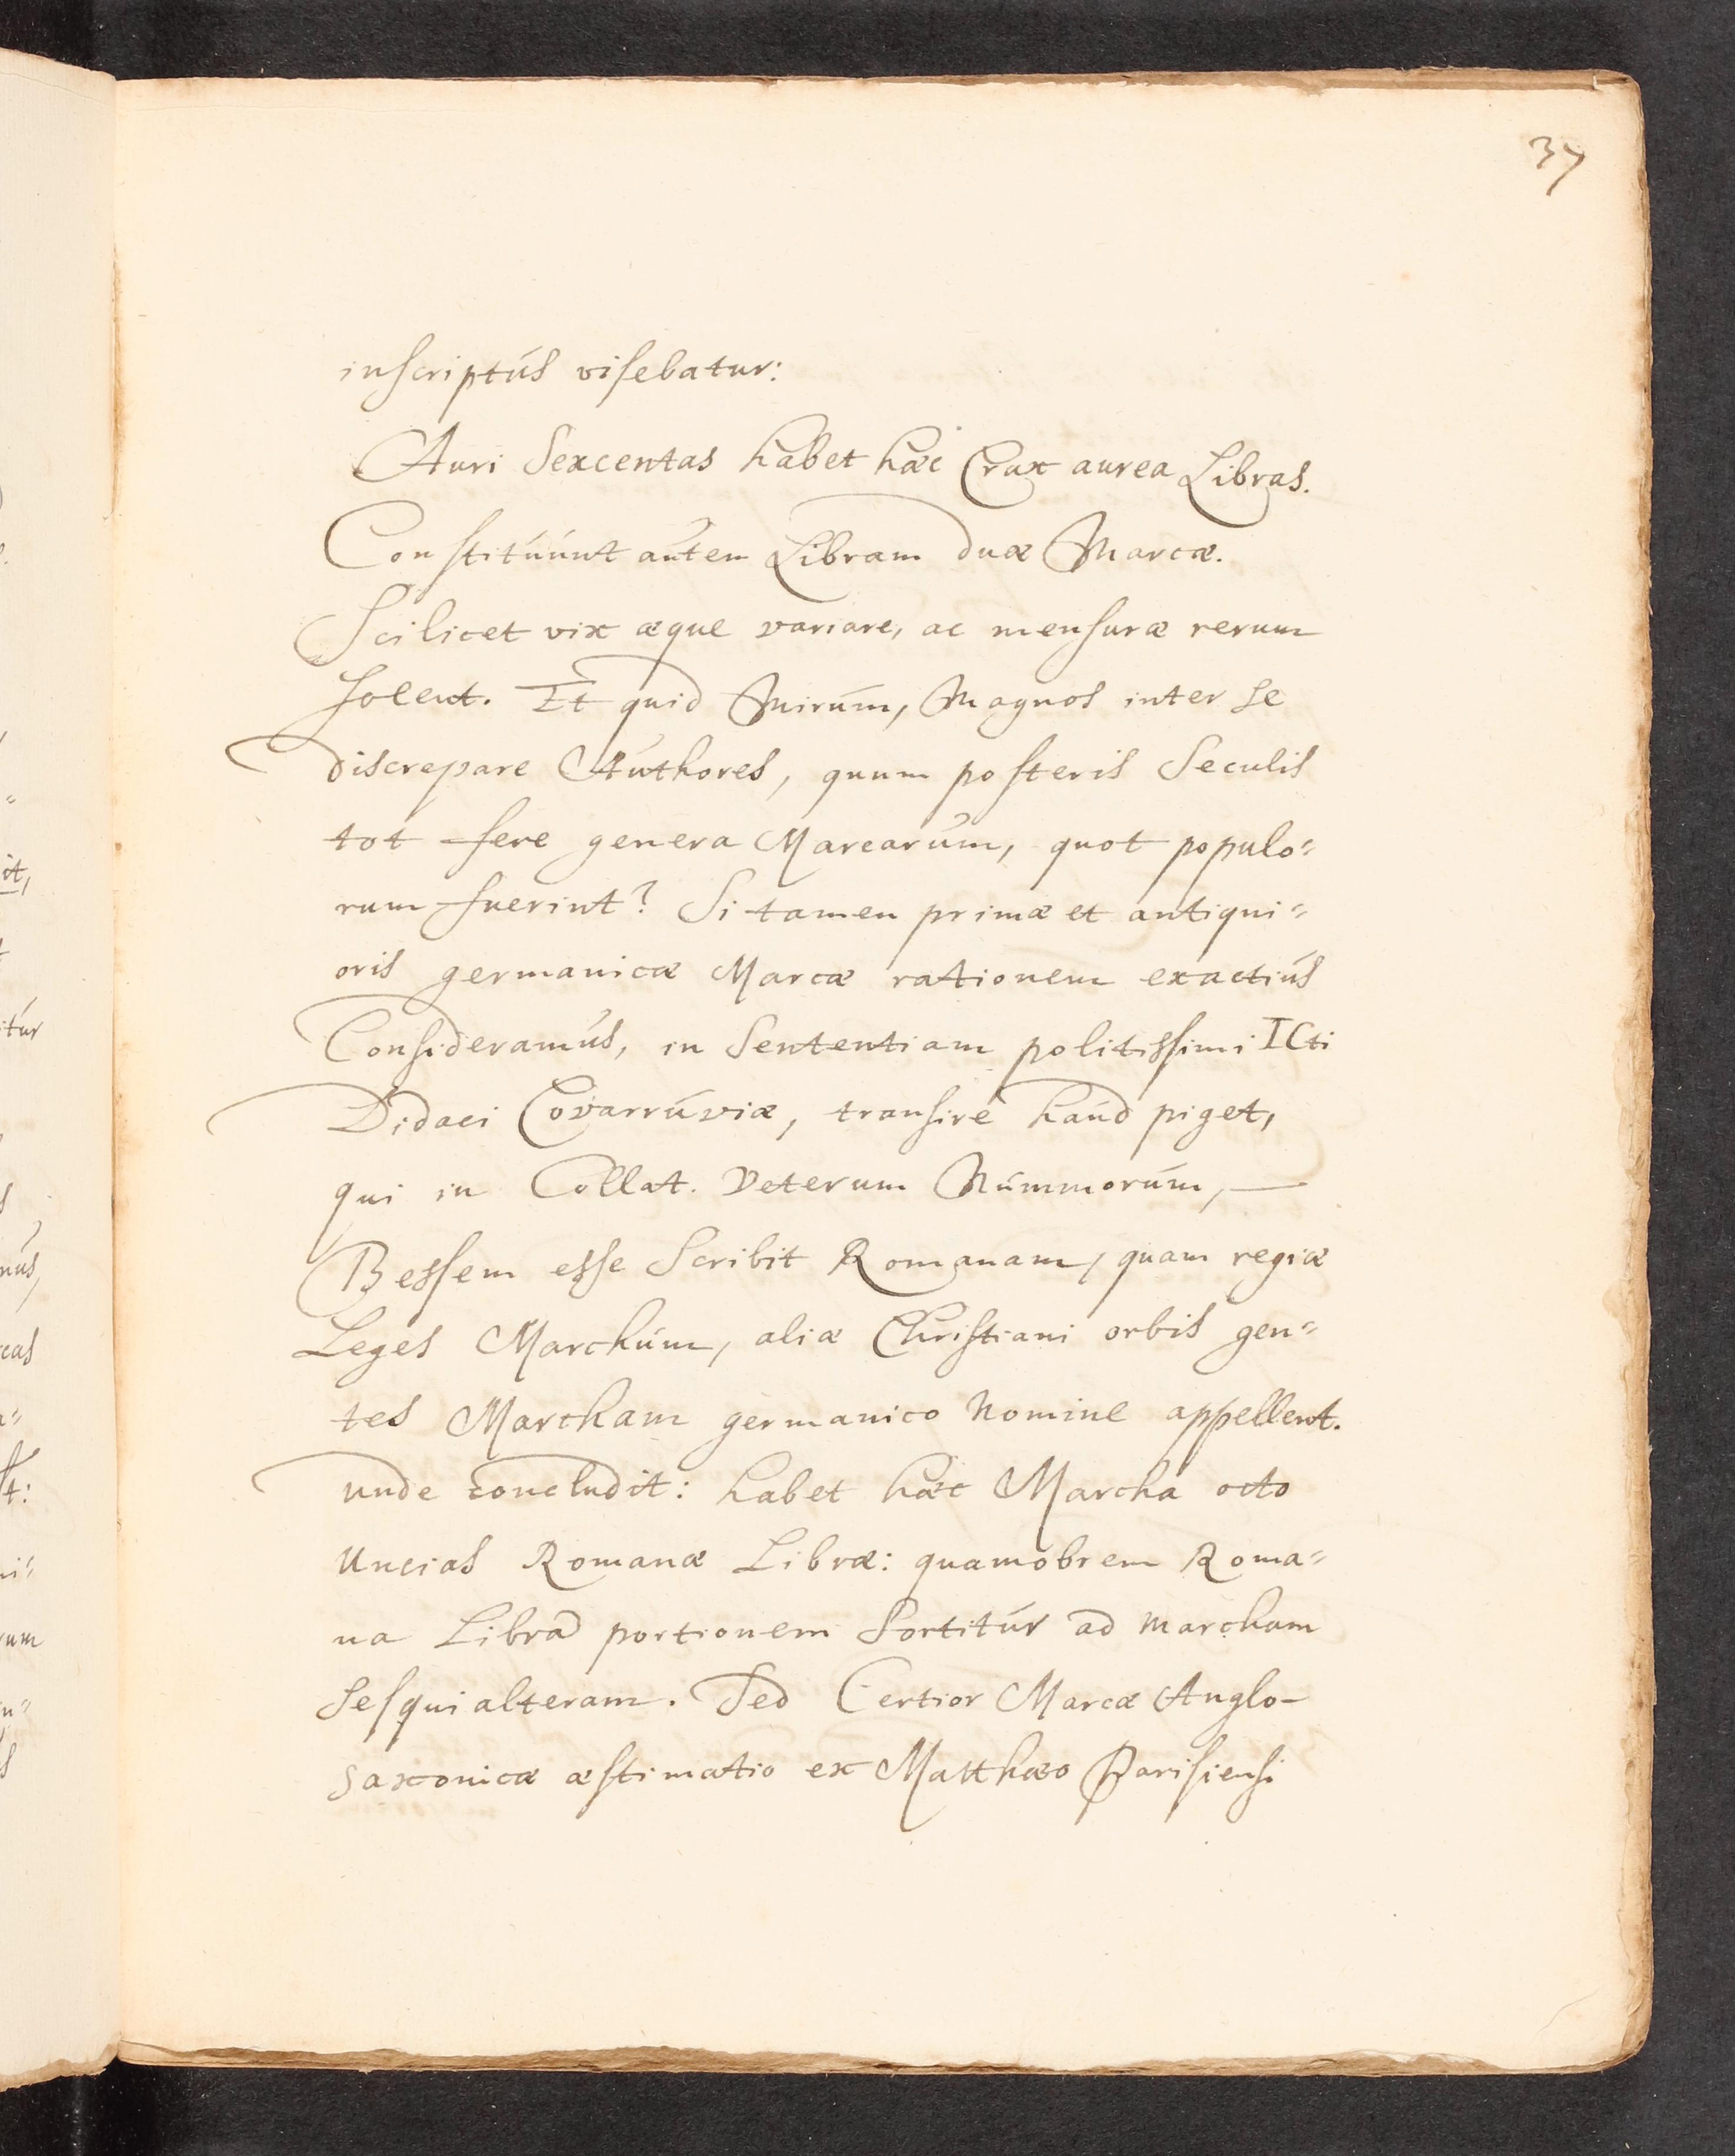 37
inscriptús visebatur:
Auri Sexcentas habet hæc Crux aurea Libras.
Constitúúnt aútem Libram duæ Marcæ.
Scilicet vix æque variare, ac mensuræ rerum
solent. Et quid Mirúm, Magnos inter se
discrepare Aúthores, quum posteris Seculis
tot fere genera Marcarúm, quot populo=
rum fuerint? Si tamen primæ et antiqui=
oris germanicæ Marcæ rationem exactiús
Consideramús, in Sententiam politissimi ICti
Didaci Covarrúviæ, transire haúd piget,
qui in Collat. Veterum Númmorúm, —
Bessem esse Scribit Romanam, quam regiæ
Leges Marchúm, aliæ Christiani orbis gen=
tes Marcham germanico Nomine appellent.
unde concludit: habet hæc Marcha octo
Uncias Romanæ Libræ: quamobrem Roma=
na Libra portionem Sortitúr ad Marcham
Sesquialteram. Sed Certior Marcæ Anglo-
saxonicæ æstimatio ex Matthæo Parisiensi